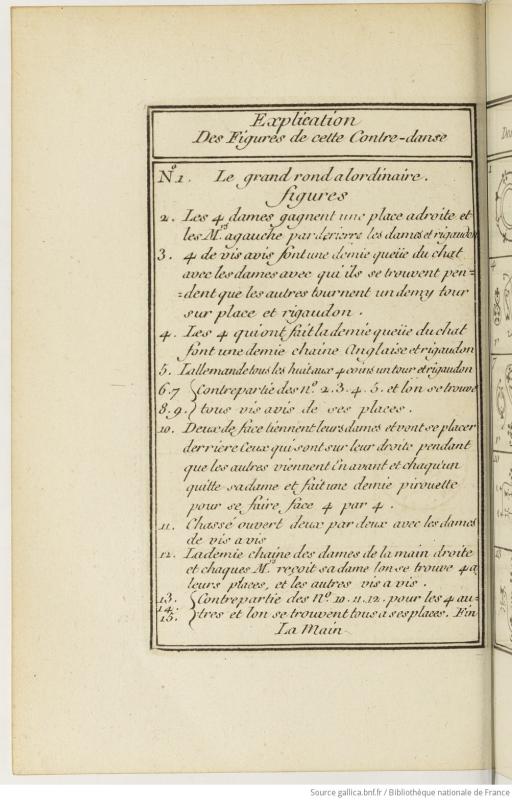 Explication
Des Figures de cette Contre-danse
N.o 1. Le grand rond alordinaire.
figures
2. Les 4 dames gagnent une place adroite et
les M.rs agauche par derierre les dames et rigaudon
3. 4 de vis avis font une demie queüe du chat
avec les dames avec qui ils se trouvent pen=
=dent que les autres tournent un demy tour
sur place et rigaudon.
4. Les 4 qui ont fait la demie queüe du chat
font une demie chaine Anglaise et rigaudon
5. Lallemande tous les huit aux 4 coins un tour et rigaudon
6.7 { Contrepartie des n.o 2. 3. 4. 5. et lon se trouve
8.9. { tous vis avis de ses places.
10. Deux de face tiennent leurs dames et vont se placer
derriere Ceux qui sont sur leur droite pendant
que les autres viennent En avant et chaqu'un
quitte sa dame et fait une demie pirouette
pour se faire face 4 par 4.
11. Chassé ouvert deux par deux avec les dames
de vis a vis
12. La demie chaine des dames de la main droite
et chaques M.rs reçoit sa dame lon se trouve 4 a
leurs places, et les autres vis a vis.
13. { Contrepartie des N.o 10. 11. 12. pour les 4 au=
14.
15. { tres et lon se trouvent tous a ses places. Fin
La Main
Source gallica.bnf.fr / Bibliothèque nationale de France